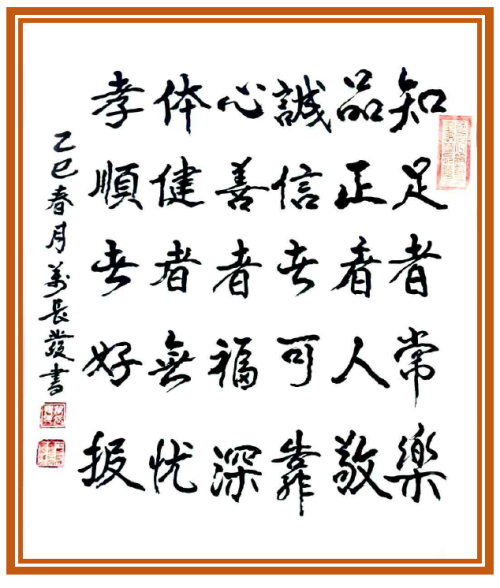 知足者常樂
品正者人敬
誠信者可靠
心善者福深
体健者無忧
孝順者好报
乙巳春月萬長發書